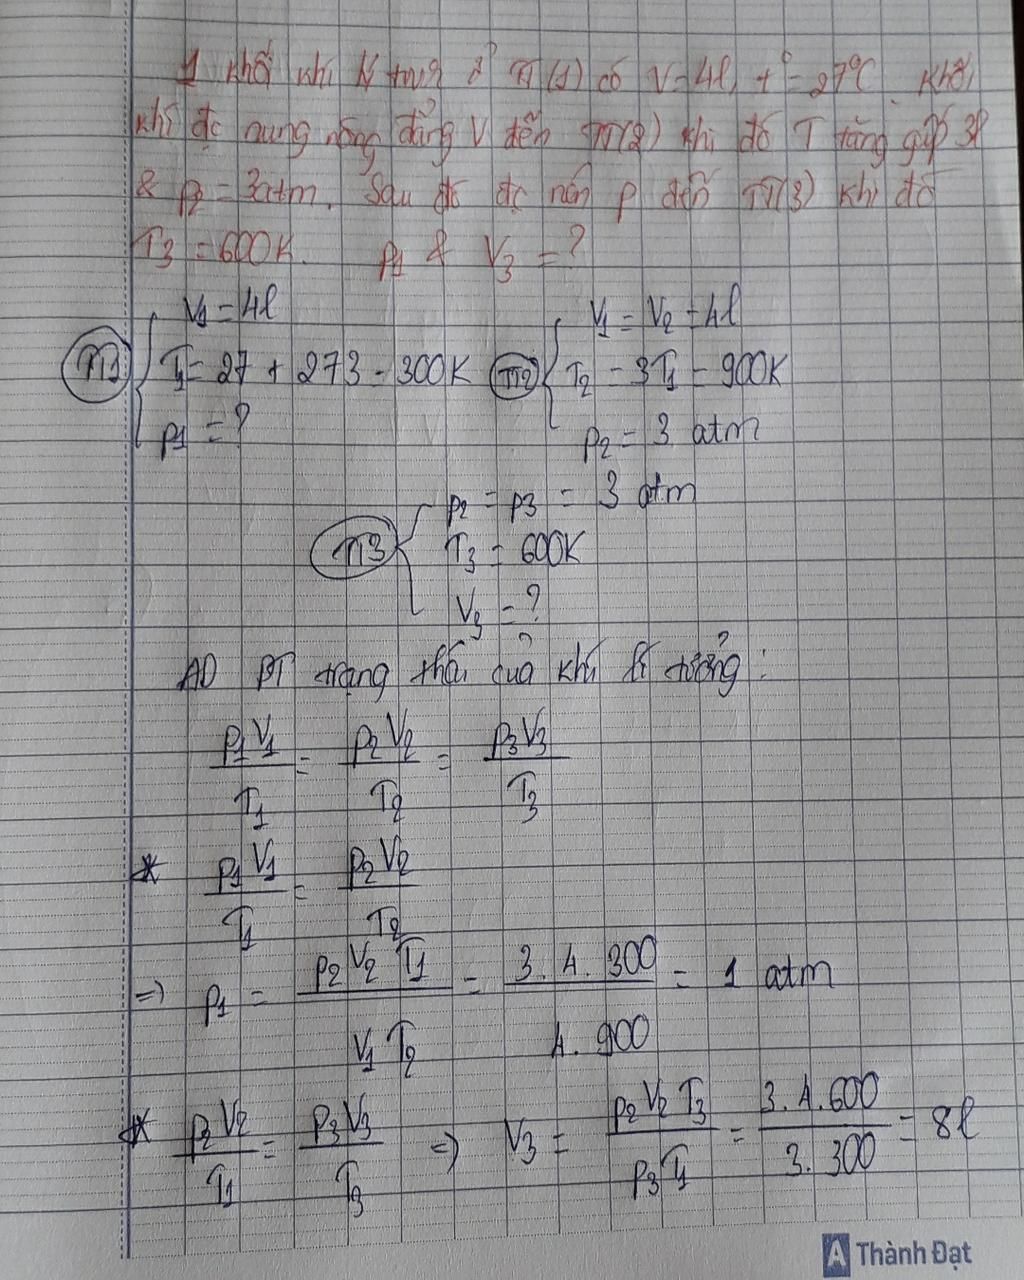 1 khối khí lí tưởng ở TT(1) có V=4l, t°=27°C. Khối
khí đc nung nóng đẳng V đến TT(2) khi đó T tăng gấp 3
& p2 = 3atm. Sau đó đc nén p đến TT(3) khi đó
T3 = 600K. p1 & V3 = ?
V1 = 4l
V1 = V2 = 4l
TT1 T1 = 27 + 273 = 300K TT2 T2 = 3T1 = 900K
p1 = ?
p2 = 3 atm
p2 = p3 = 3 atm
TT3 T3 = 600K
V3 = ?
AD PT trạng thái của khí lí tưởng:
p1V1/T1 = p2V2/T2 = p3V3/T3
* p1V1/T1 = p2V2/T2
=> p1 = p2V2T1/V1T2 = 3.4.300/4.900 = 1 atm
* p2V2/T1 = p3V3/T3 => V3 = p2V2T3/p3T1 = 3.4.600/3.300 = 8l
A Thành Đạt